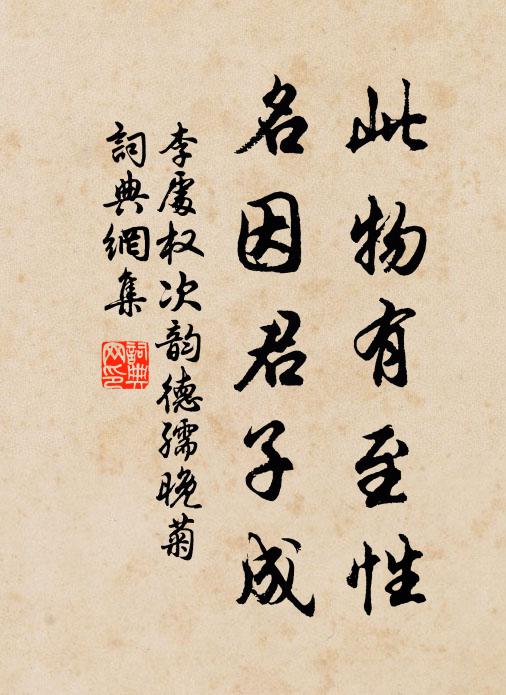 此物有至性
名因君子成
李處权次韵德孺晚菊
詞典網集
詞典网印